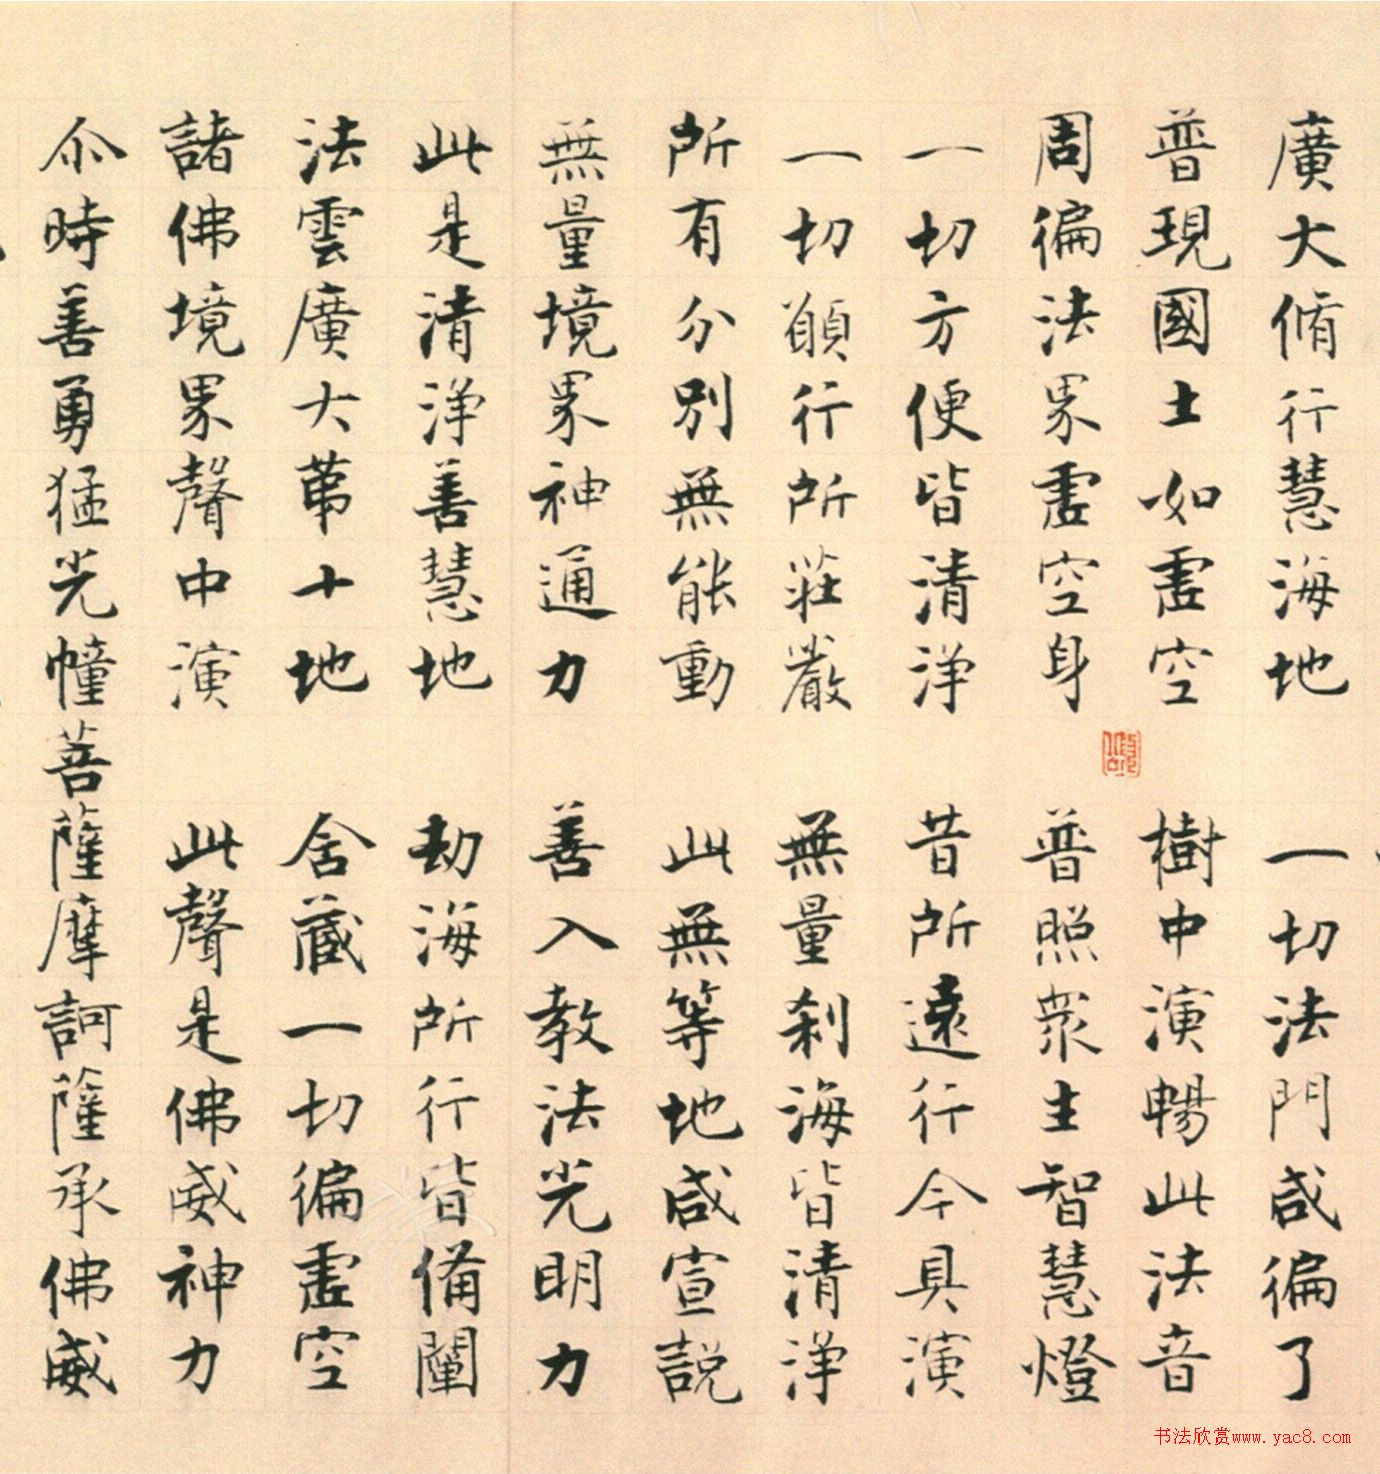 廣大脩行慧海地 一切法門咸徧了
普現國土如虛空 樹中演暢此法音
周徧法界虛空身 普照眾生智慧燈
一切方便皆清淨 昔所遠行今具演
一切願行所莊嚴 無量剎海皆清淨
所有分別無能動 此無等地咸宣說
無量境界神通力 善入教法光明力
此是清淨善慧地 劫海所行皆備闡
法雲廣大第十地 含藏一切徧虛空
諸佛境界聲中演 此聲是佛威神力
尒時善勇猛光幢菩薩摩訶薩承佛威
书法欣赏www.yac8.com